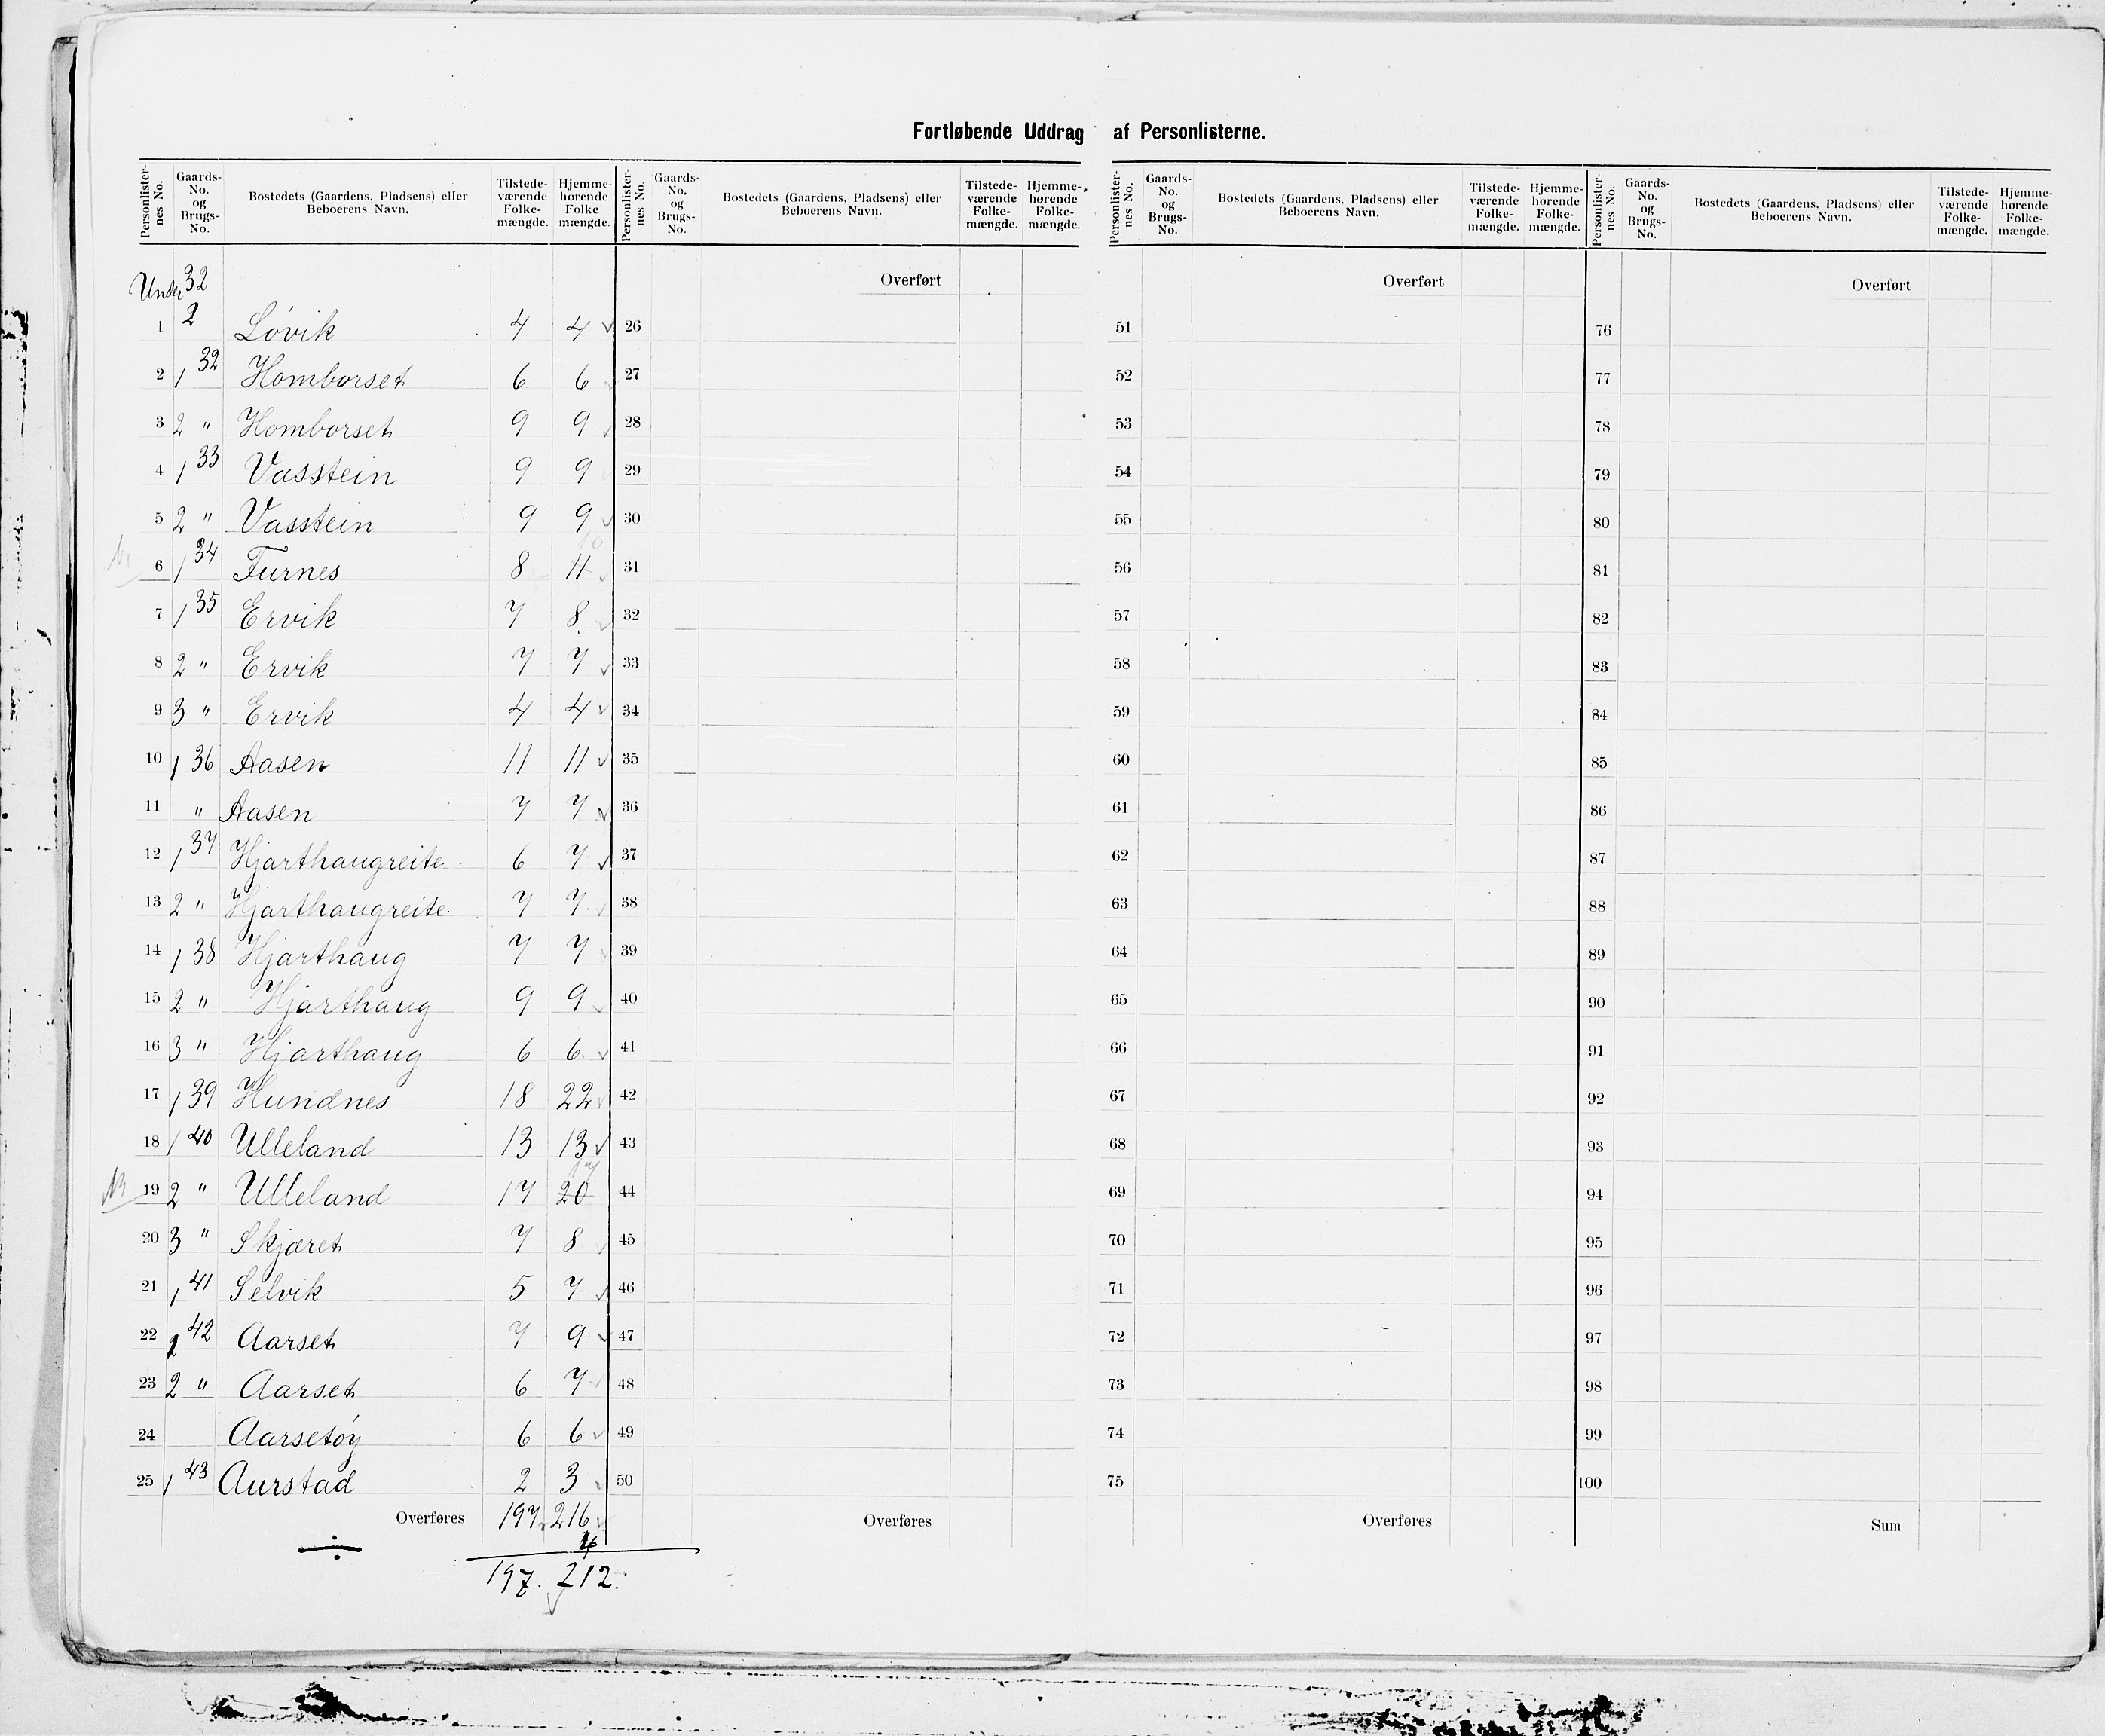 Fortløbende Uddrag af Personlisterne.
Personlister-nes No. Gaards-No. og Brugs-No. Bostedets (Gaardens, Pladsens) eller Beboerens Navn. Tilstede-værende Folke-mængde. Hjemme-hørende Folke mængde.
Personlister-nes No. Gaards-No. og Brugs-No. Bostedets (Gaardens, Pladsens) eller Beboerens Navn. Tilstede-værende Folke-mængde. Hjemme-hørende Folke-mængde.
Personlister-nes No. Gaards-No. og Brugs-No. Bostedets (Gaardens, Pladsens) eller Beboerens Navn. Tilstede-værende Folke-mængde. Hjemme-hørende Folke-mængde.
Personlister-nes No. Gaards-No. og Brugs-No. Bostedets (Gaardens, Pladsens) eller Beboerens Navn. Tilstede-værende Folke-mængde. Hjemme-hørende Folke-mængde.
Under 32 Overført Overført Overført
1 2 Lóvik 4 4 26 51 76
2 1 32 Homborset 6 6 27 52 77
3 2 " Homborset 9 9 28 53 78
4 1 33 Vasstein 9 9 29 54 79
5 2 " Vasstein 9 9 30 55 80
6 1 34 Furnes 8 11 10 31 56 81
7 1 35 Ervik 7 8 32 57 82
8 2 " Ervik 7 7 33 58 83
9 3 " Ervik 4 4 34 59 84
10 1 36 Aasen 11 11 35 60 85
11 " Aasen 7 7 36 61 86
12 1 37 Hjarthaugreite 6 7 37 62 87
13 2 " Hjarthaugreite 7 7 38 63 88
14 1 38 Hjarthaug 7 7 39 64 89
15 2 " Hjarthaug 9 9 40 65 90
16 3 " Hjarthaug 6 6 41 66 91
17 1 39 Hundnes 18 22 42 67 92
18 1 40 Ulleland 13 13 43 68 93
19 2 " Ulleland 17 20 17 44 69 94
20 3 " Skjæret 7 8 45 70 95
21 1 41 Selvik 5 7 46 71 96
22 1 42 Aarset 7 9 47 72 97
23 2 " Aarset 6 7 48 73 98
24 Aarsetóy 6 6 49 74 99
25 1 43 Aurstad 2 3 50 75 100
Overføres 197 216 Overføres Overføres Sum
÷ 4
197. 212.